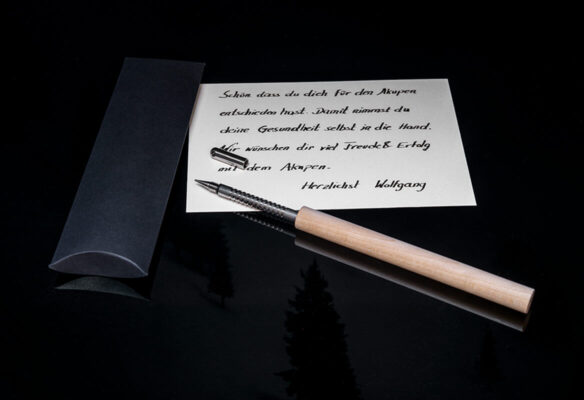 Schön dass du dich für den Akupen
entschieden hast. Damit nimmst du
deine Gesundheit selbst in die Hand.
Wir wünschen dir viel Freude & Erfolg
mit dem Akupen.
Herzlichst Wolfgang